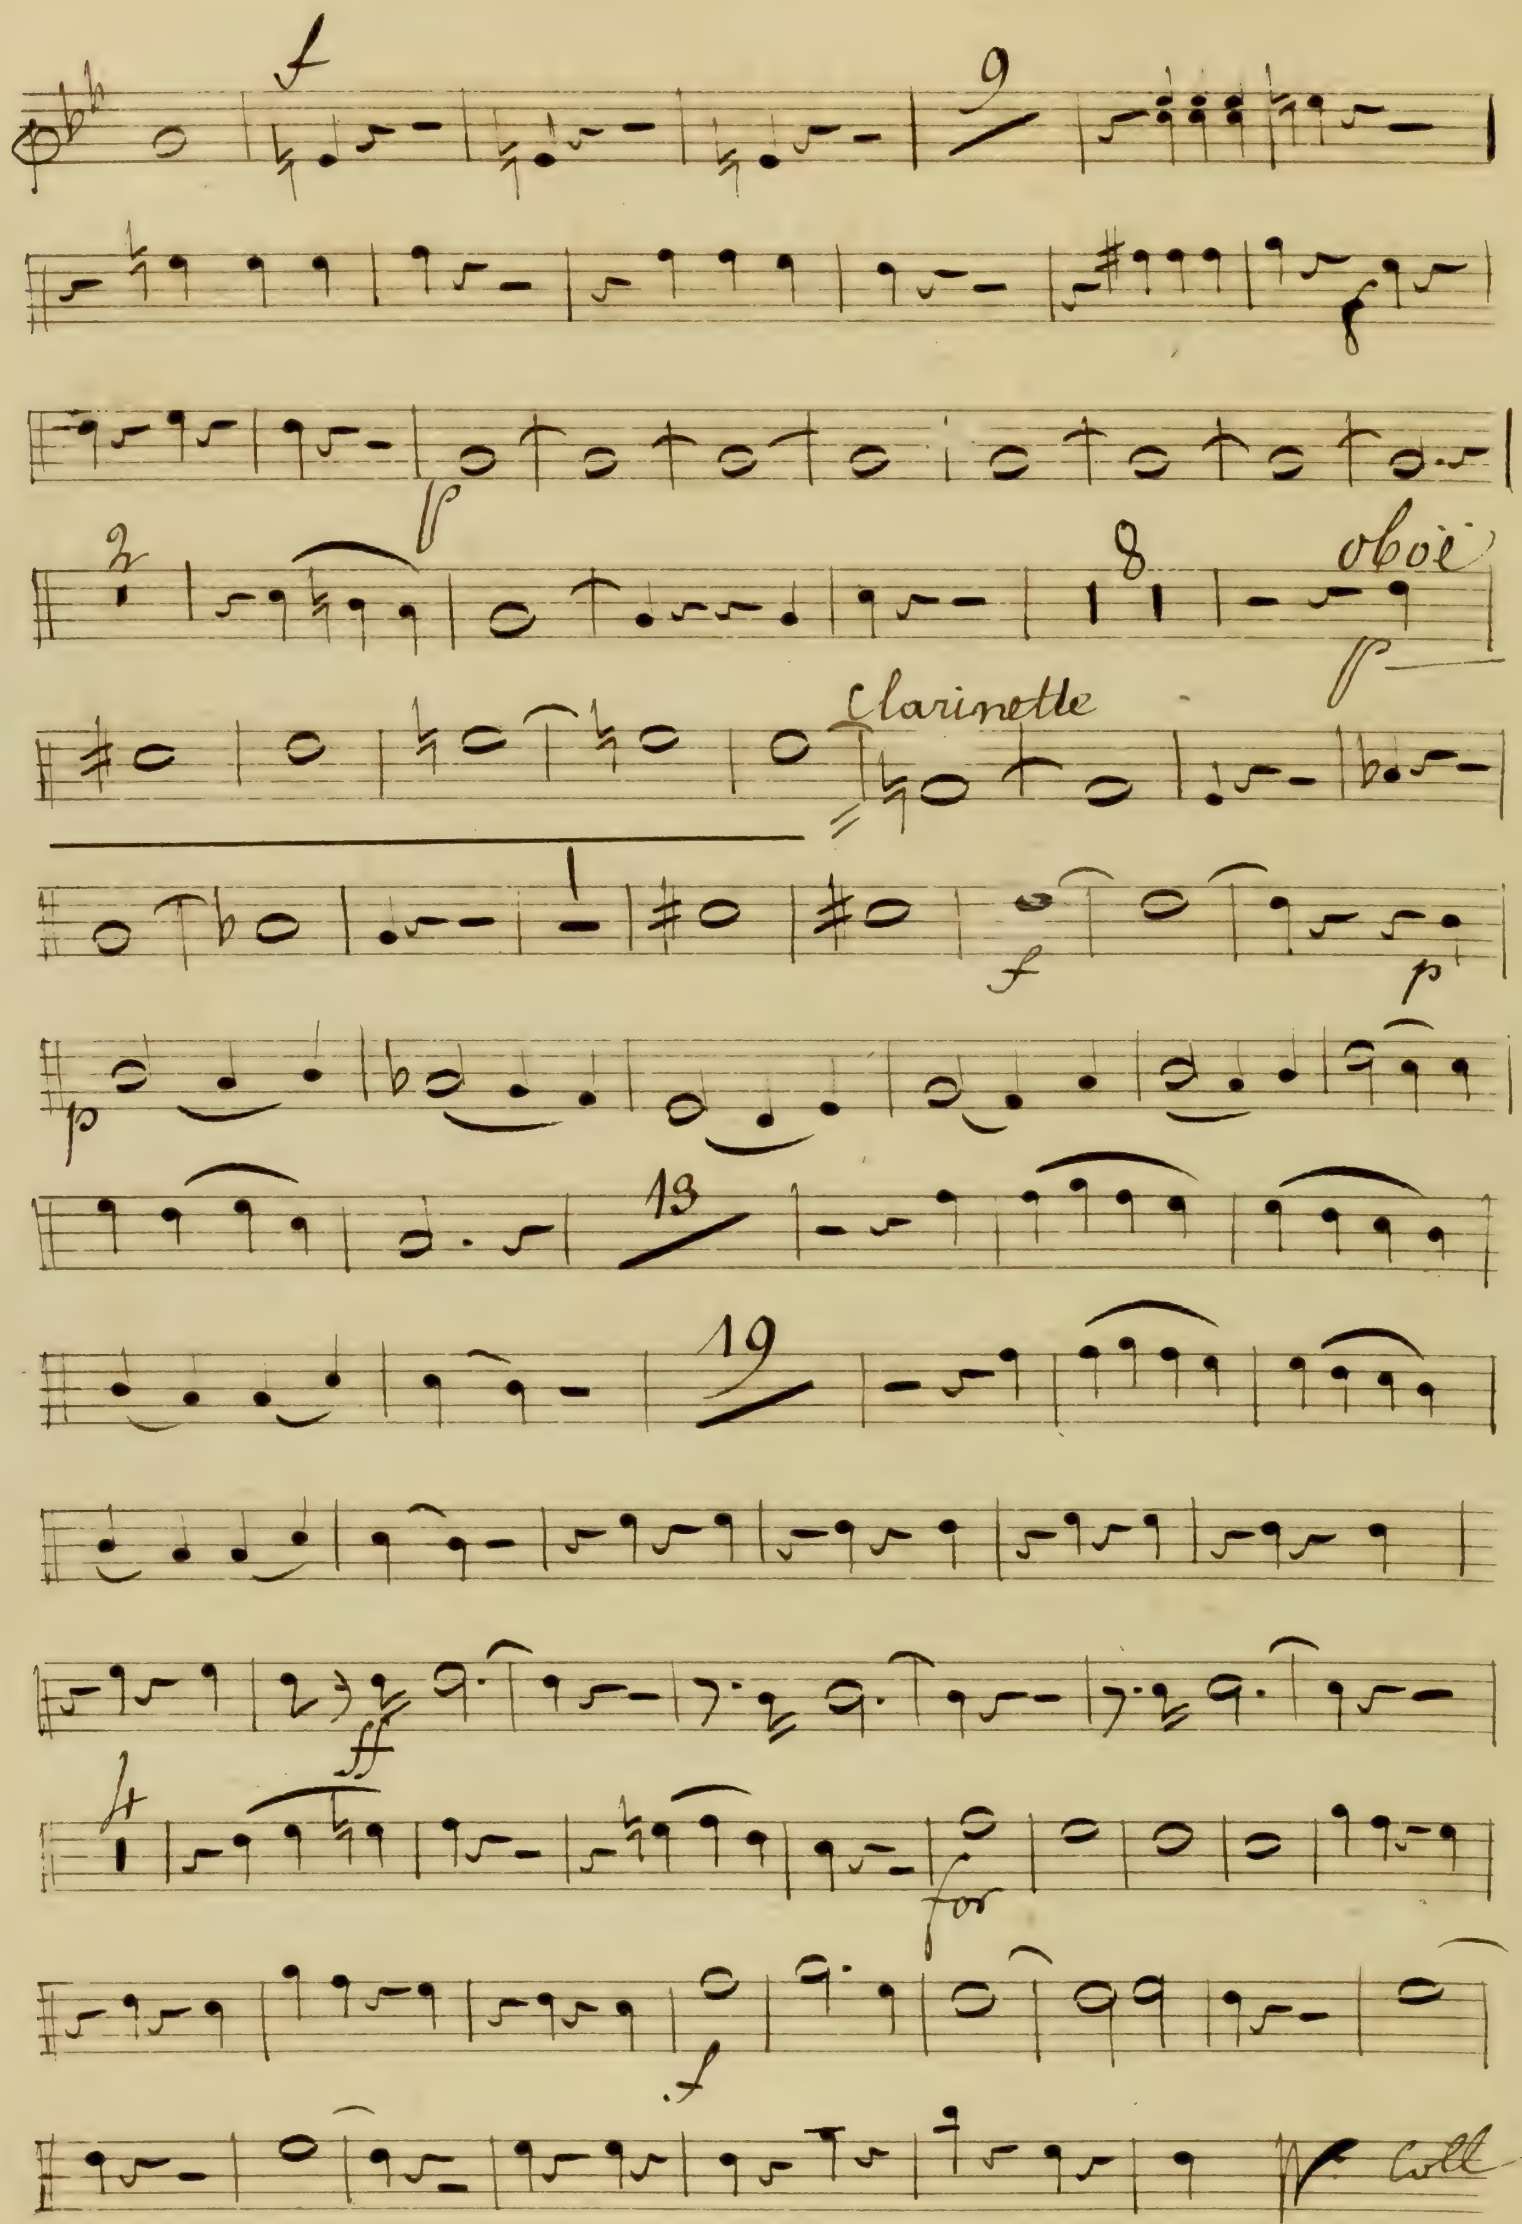 f
9
f
p
2
8
oboë
p
Clarinette
f
p
p
13
19
ff
4
for
f
Coll